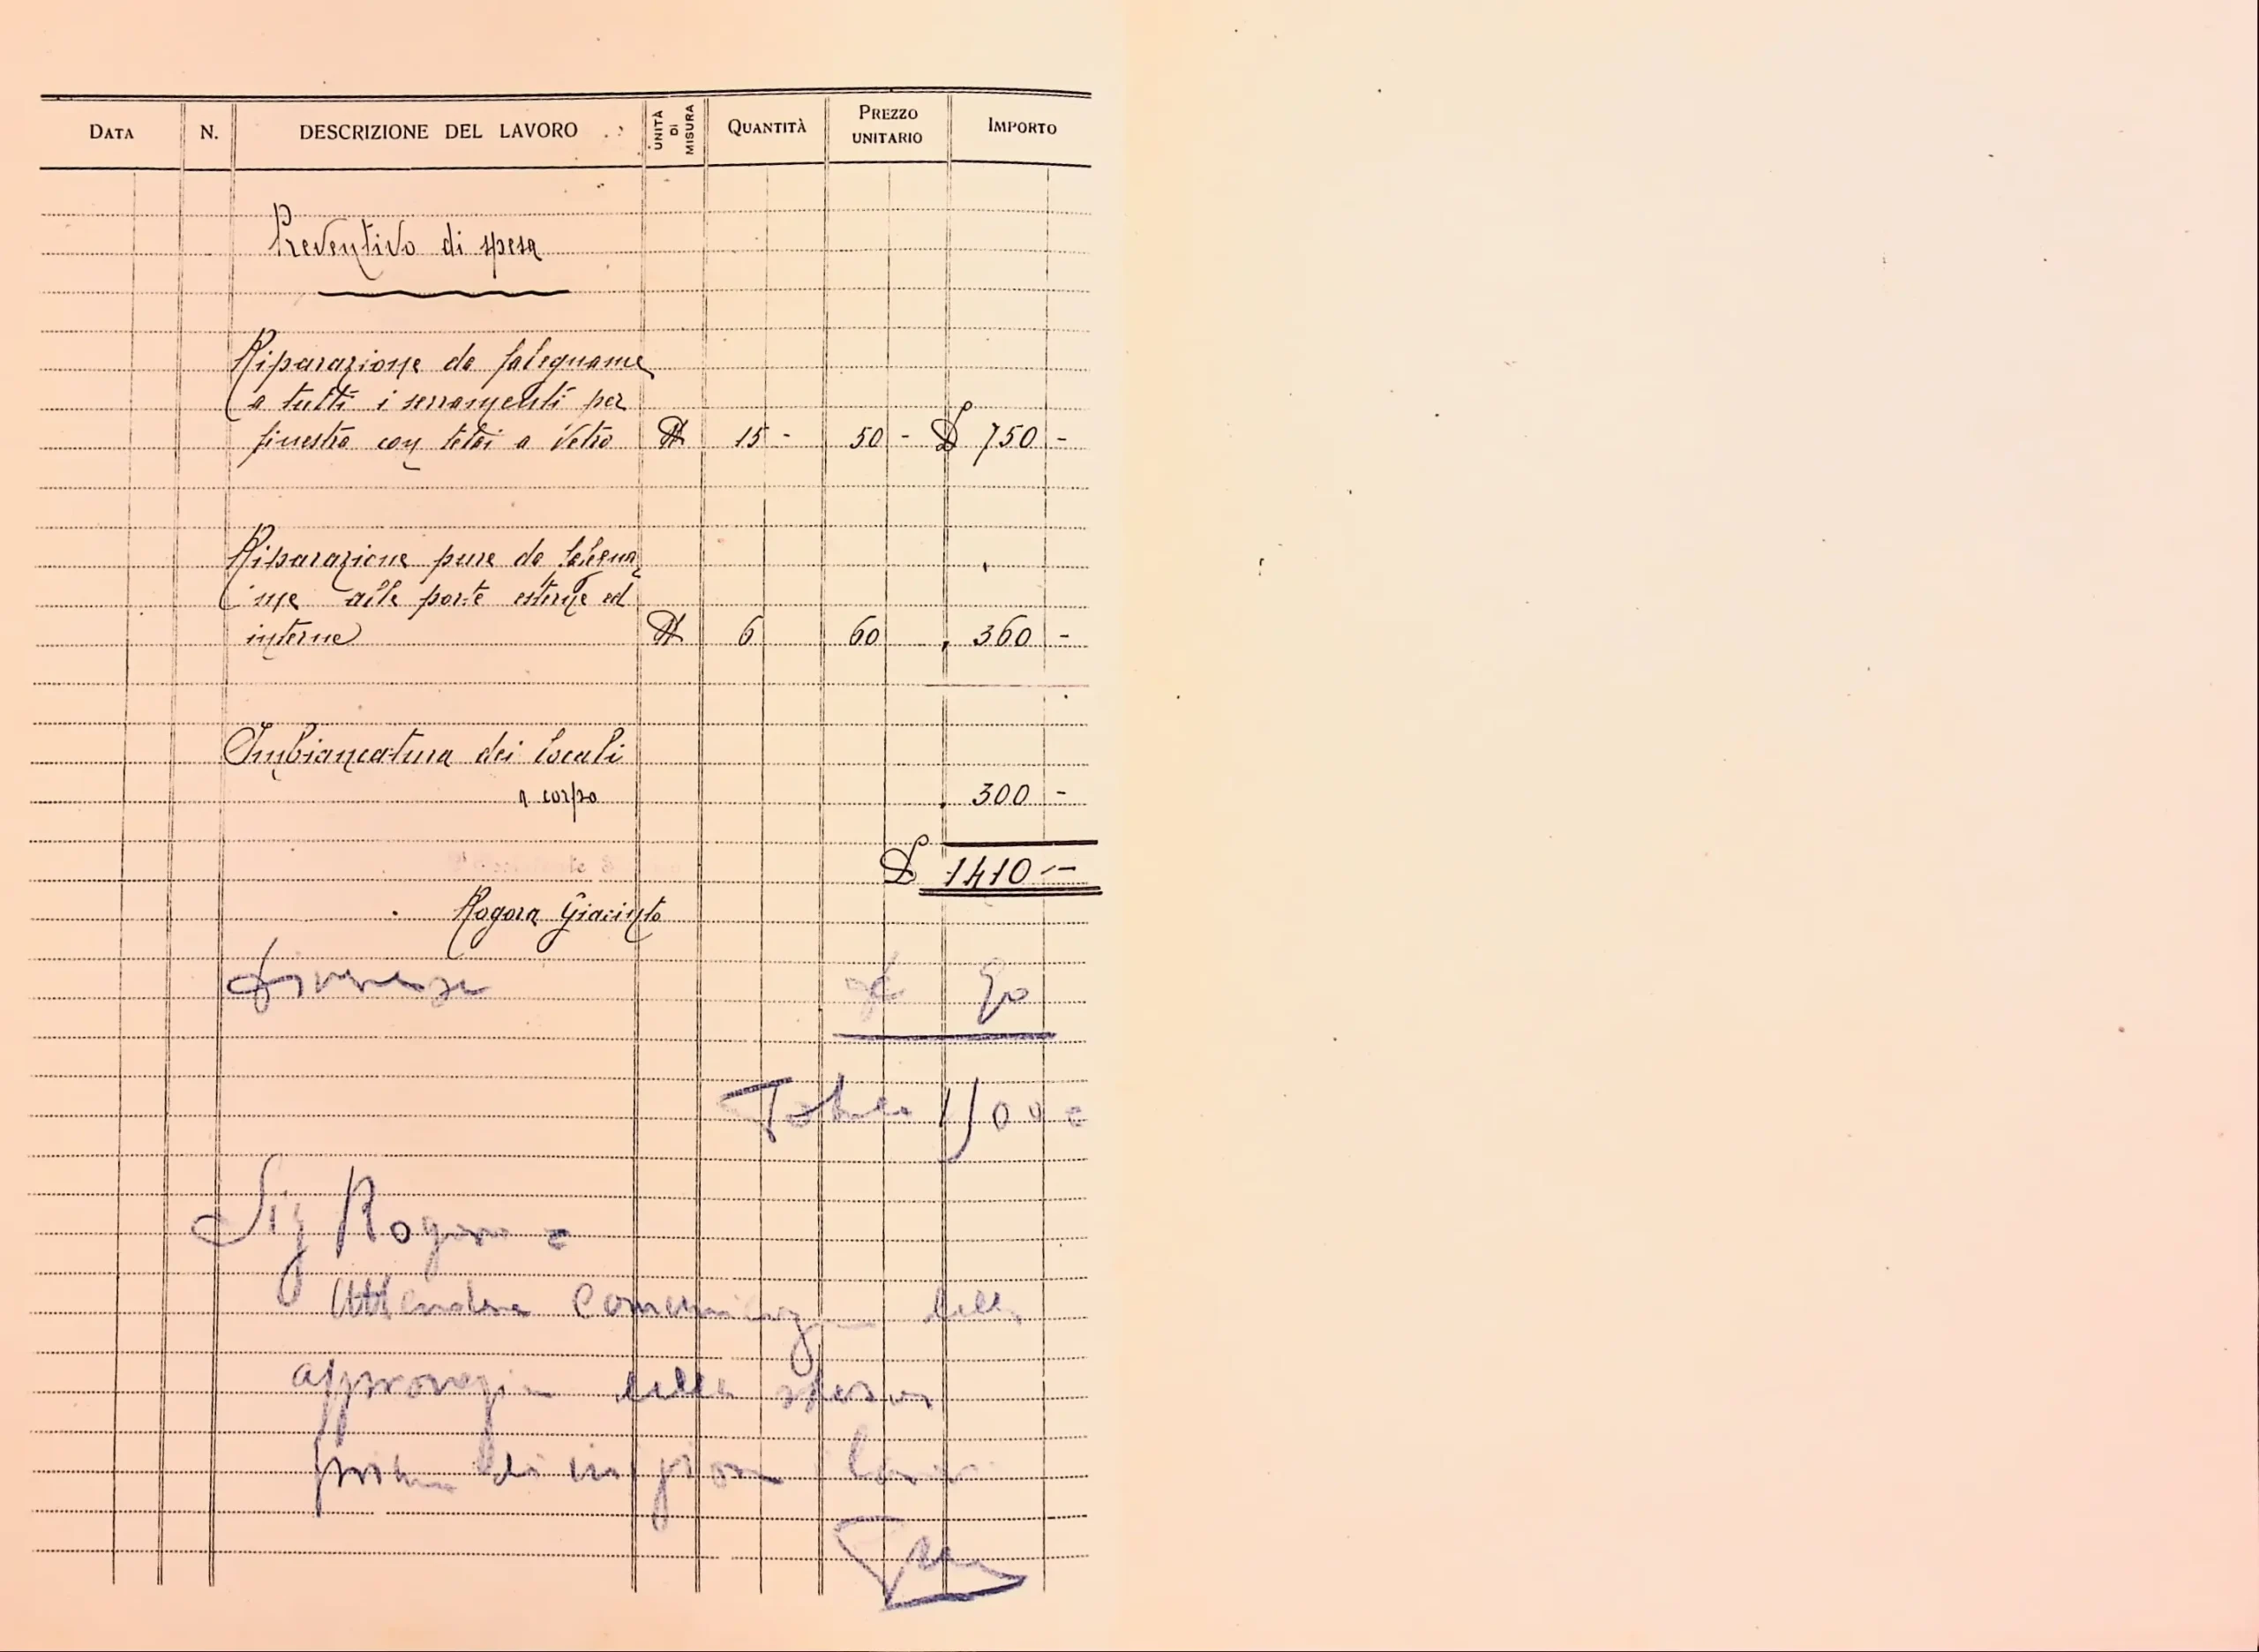 DATA N. DESCRIZIONE DEL LAVORO UNITÀ DI MISURA QUANTITÀ PREZZO UNITARIO IMPORTO
Preventivo di spesa
Riparazione da falegname
a tutti i serramenti per
finestra con telai a vetro N 15 - 50 - £ 750 -
Riparazione pure da falegna
me alle porte esterne ed
interne N 6 60 , 360 -
Imbiancatura dei locali
a corpo , 300 -
£ 1410 --
Rogora Giacinto
90
Totale 1500 =
Sig Rogora =
Attendere comunicaz della
approvazion della spesa
prima di iniziare lavori